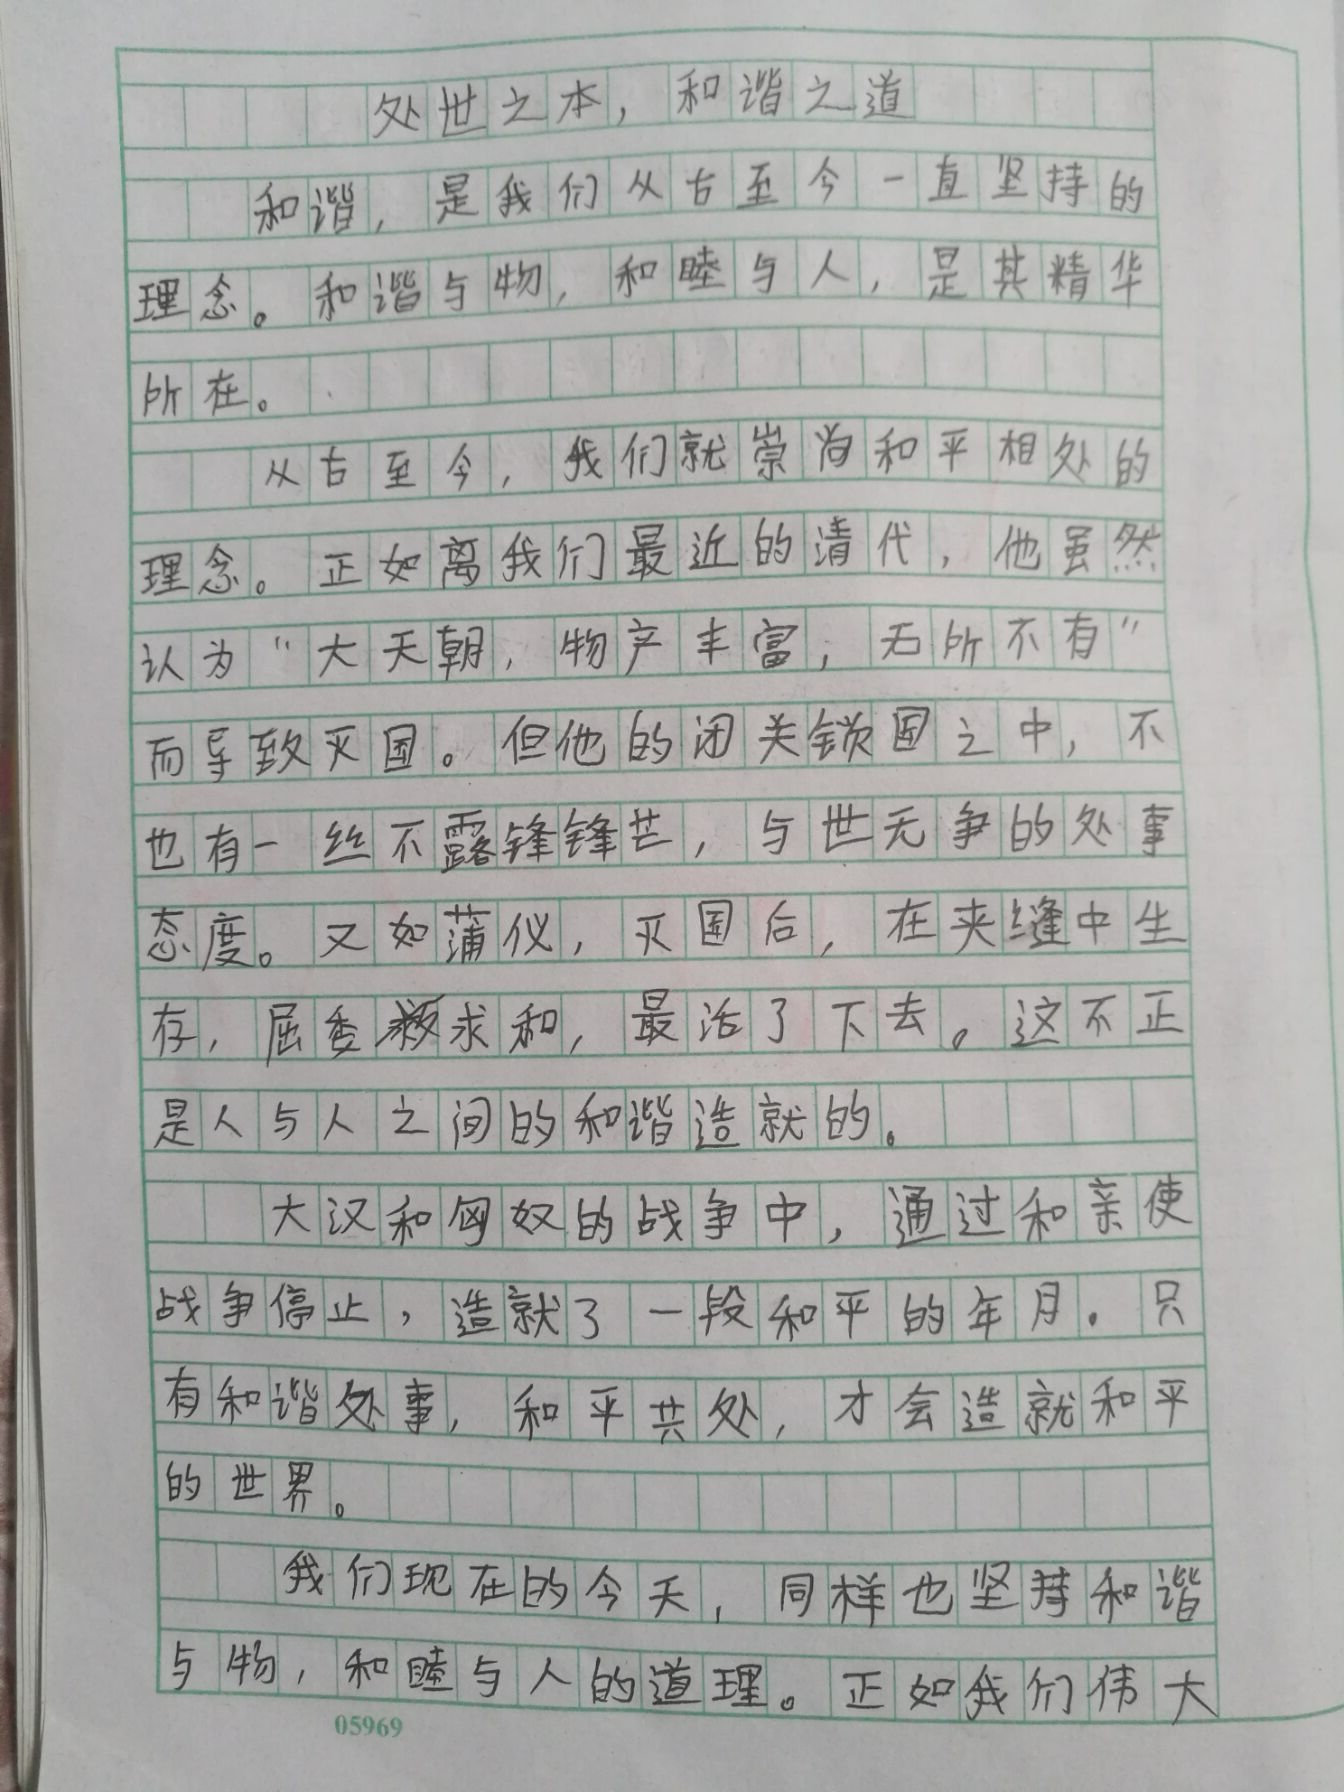 处世之本，和谐之道
和谐，是我们从古至今一直坚持的
理念。和谐与物，和睦与人，是其精华
所在。
从古至今，我们就崇尚和平相处的
理念。正如离我们最近的清代，他虽然
认为“大天朝，物产丰富，无所不有”
而导致灭国。但他的闭关锁国之中，不
也有一丝不露锋锋芒，与世无争的处事
态度。又如蒲仪，灭国后，在夹缝中生
存，屈委求和，最活了下去。这不正
是人与人之间的和谐造就的。
大汉和匈奴的战争中，通过和亲使
战争停止，造就了一段和平的年月。只
有和谐处事，和平共处，才会造就和平
的世界。
我们现在的今天，同样也坚持和谐
与物，和睦与人的道理。正如我们伟大
05969